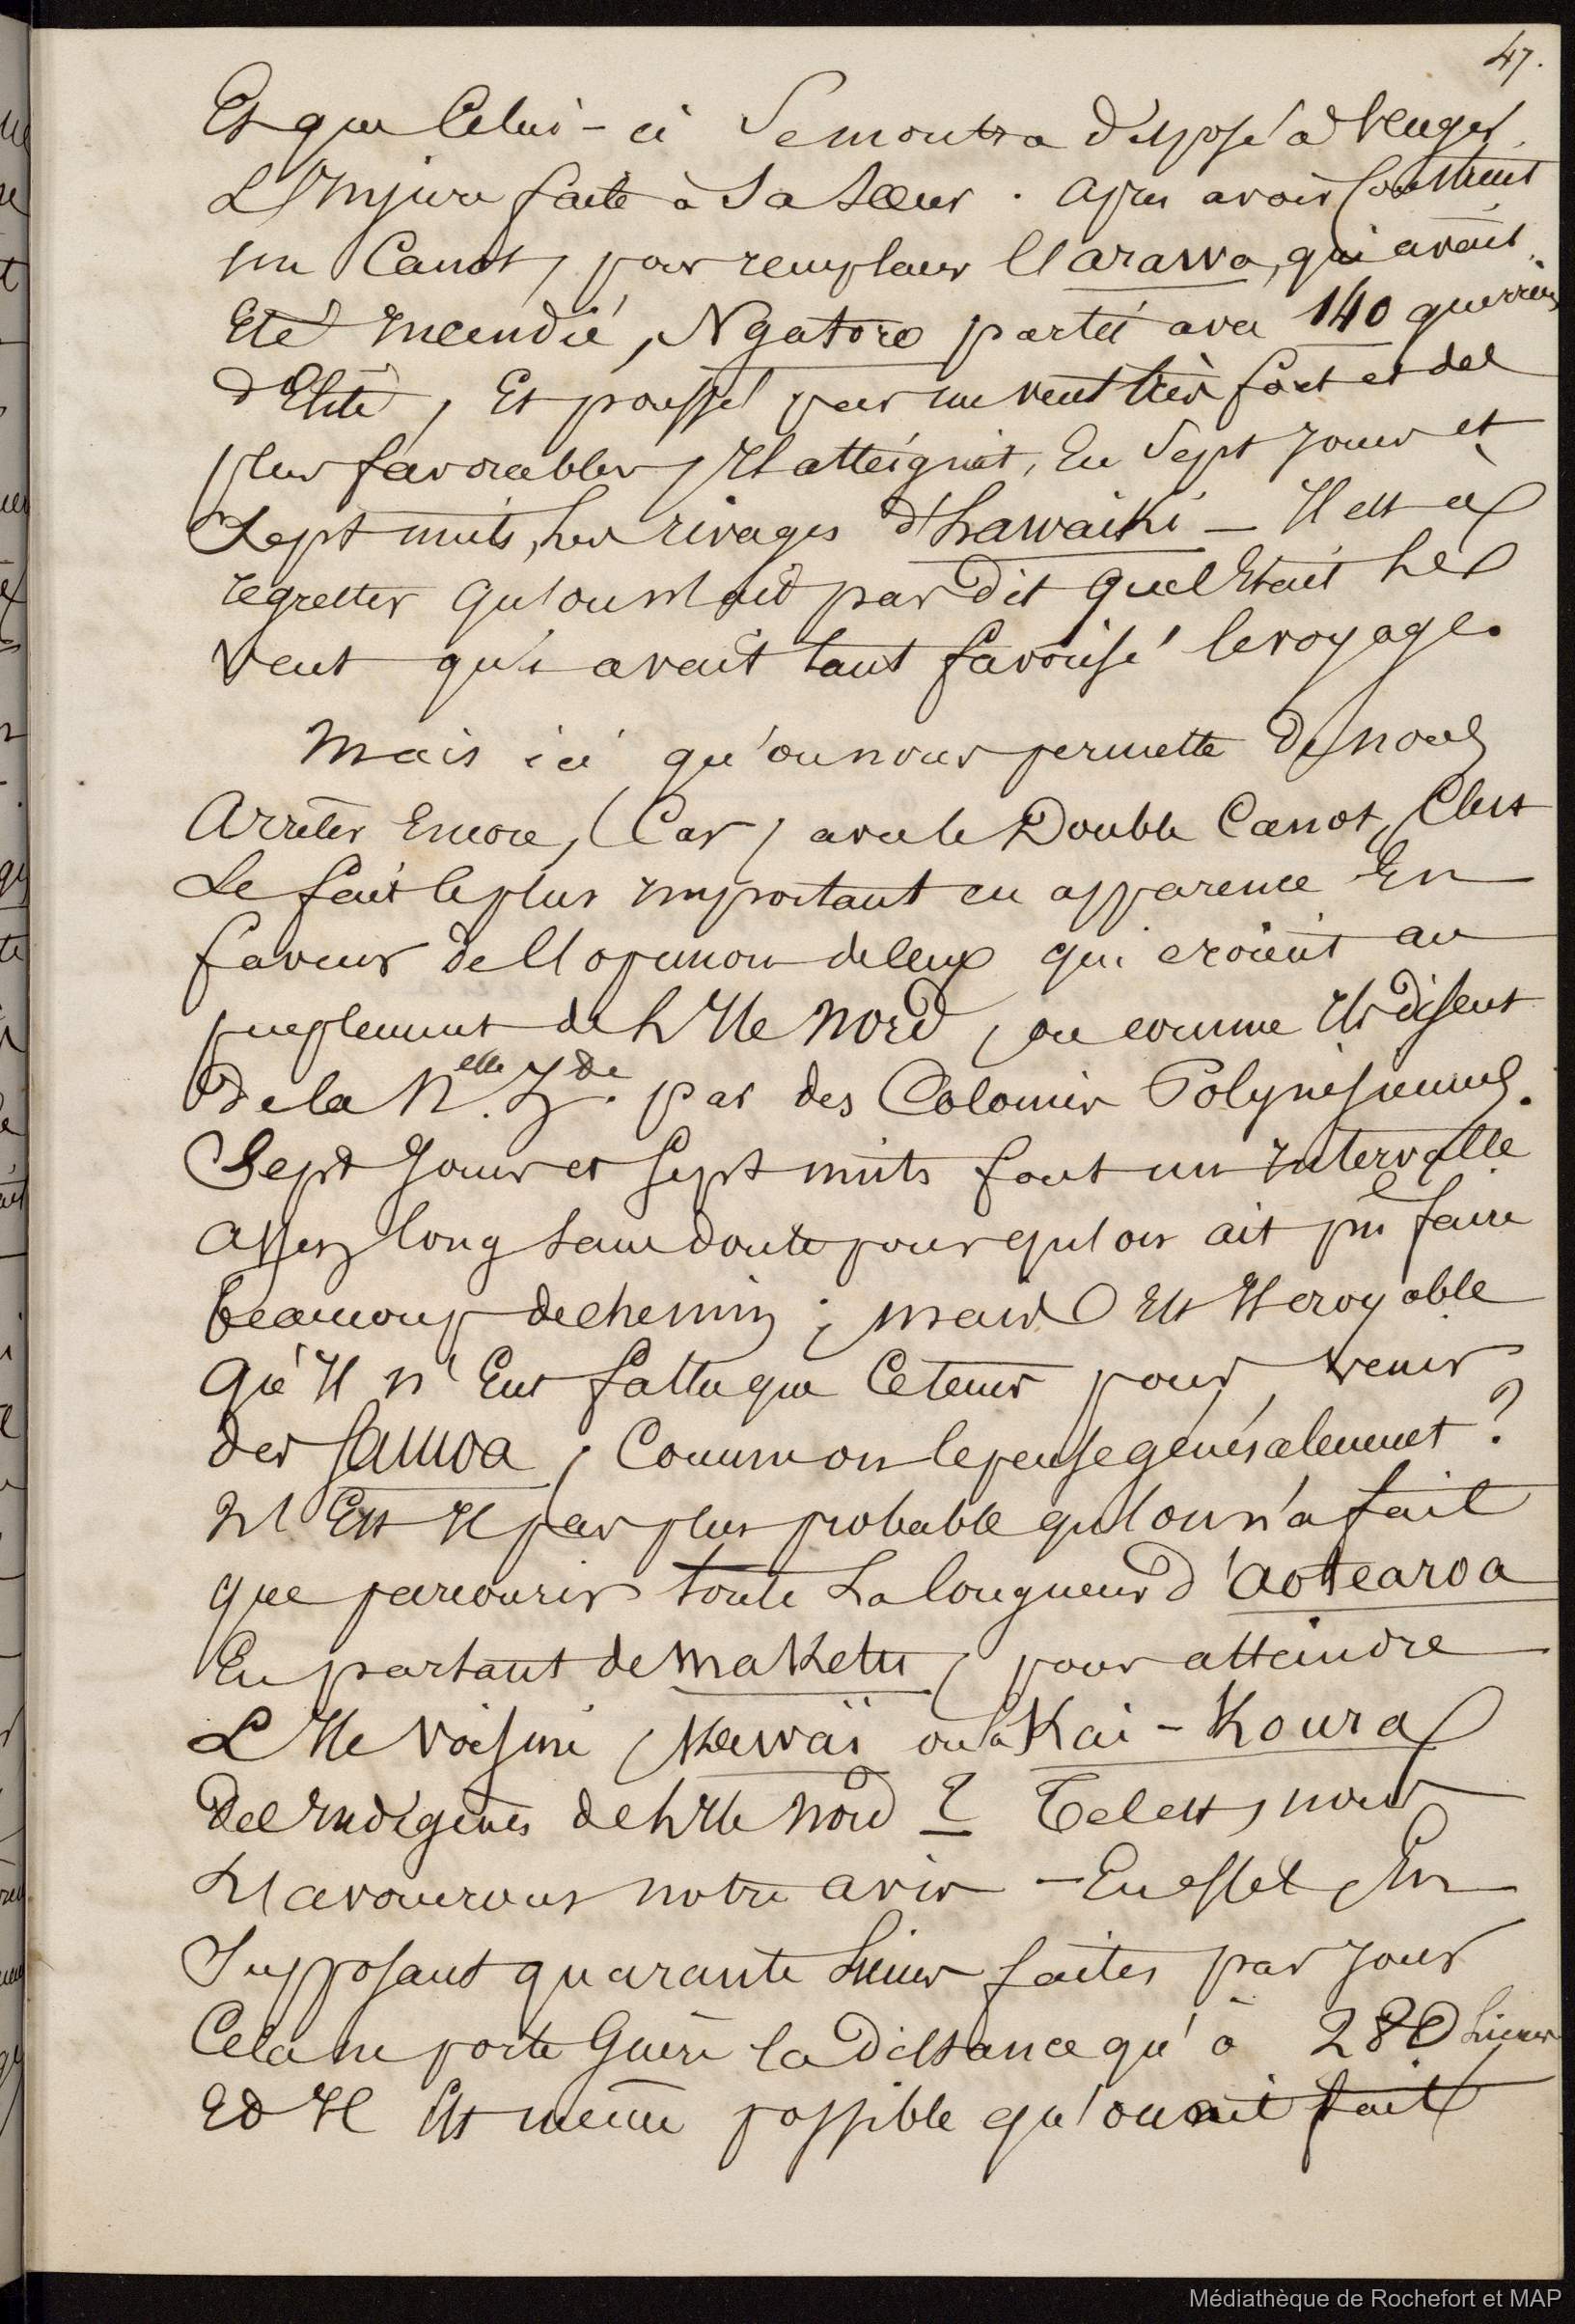 47.
Et que Celui-ci Se montra disposé à venger
L'Injure faite à Sa Sœur. après avoir Construit
un Canot, pour remplacer l'arawa, qui avait
Eté Incendié, Ngatoro partit avec 140 guerriers
d'Elite, Et poussé par un vent très fort et des
plus favorables, Il atteignit, En Sept jours et
Sept nuits, les rivages d'hawaiki – Il est à
regretter qu'on n'ait pas dit quel Etait le
vent qui avait tant favorisé le voyage.
Mais ici qu'on nous permette de nous
Arrêter Encore, Car, avec le Double Canot, C'est
Le fait le plus important en apparence En
faveur de l'opinion de ceux qui croient au
peuplement de l'Ile Nord, ou comme Ils disent
De la N.elle Z.de par des Colonies Polynésiennes.
Sept Jours et Sept nuits font un Intervalle
assez long sans doute pour qu'on ait pu faire
beaucoup de chemin ; mais Est Il croyable
Qu'Il n'Eut fallu que Ce tems pour, venir
des Samoa, Comme on le pense généralement ?
N'Est Il pas plus probable qu'on n'a fait
que parcourir toute La longueur d'aotearoa
En partant de Maketu, pour atteindre
L'Ile voisine, Kawaï ou la Kai-Koura
Des Indigènes de l'Ile Nord ? Tel est, nous
L'avouerons notre avis – En effet, En
Supposant quarante Lieues faites par Jour
Cela ne porte Guère la Distance qu'à 280 Lieues
Et Il Est même possible qu'on ait fait
Médiathèque de Rochefort et MAP